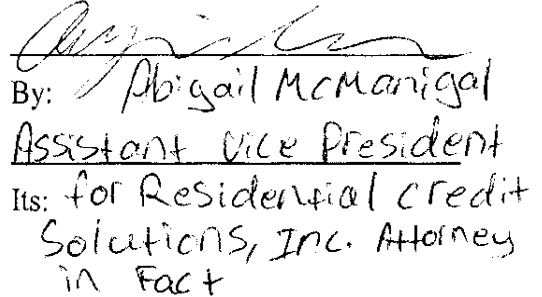 By: Abigail McManigal
Assistant Vice President
Its: for Residential Credit
Solutions, Inc. Attorney
in Fact